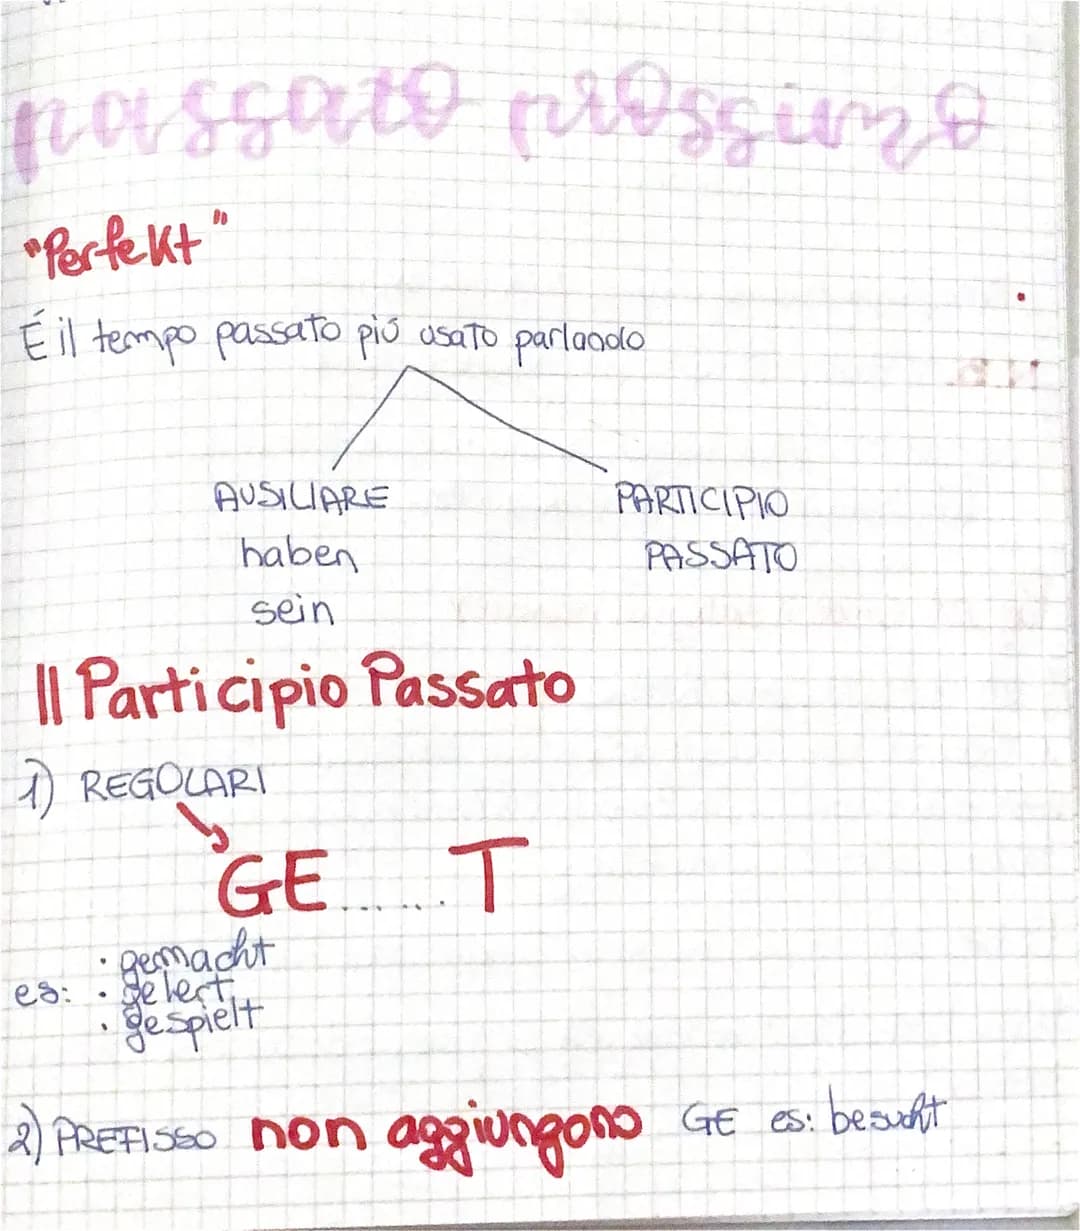 passato prossimo
"Perfekt"
É il tempo passato piú usato parlando
AUSILIARE
haben
sein
PARTICIPIO
PASSATO
Il Participio Passato
1) REGOLARI
GE...... T
es:
• gemacht
• gelert
• gespielt
2) PREFISSO non aggiungono GE es: besucht